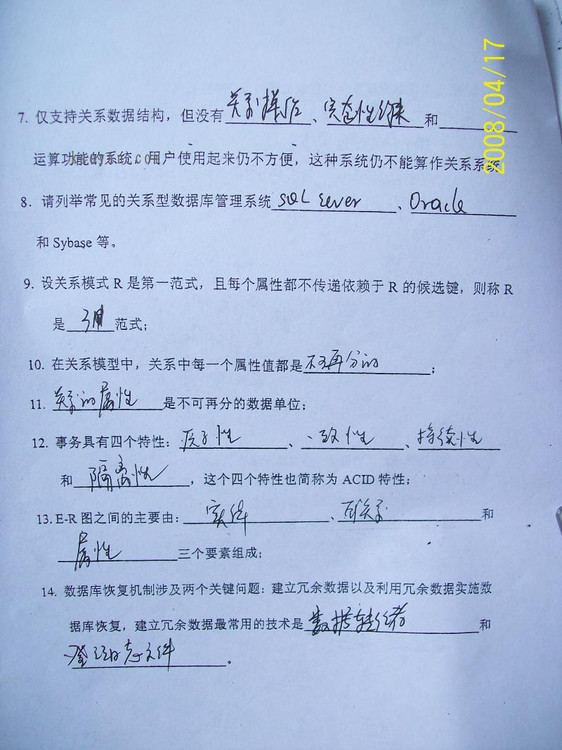 2008/04/17
7. 仅支持关系数据结构，但没有关系操作、完整性约束和
运算功能的系统，用户使用起来仍不方便，这种系统仍不能算作关系系
8. 请列举常见的关系型数据库管理系统 SQL Sever、Oracle
和 Sybase 等。
9. 设关系模式 R 是第一范式，且每个属性都不传递依赖于 R 的候选键，则称 R
是 3NF 范式；
10. 在关系模型中，关系中每一个属性值都是不可再分的；
11. 关系的属性是不可再分的数据单位；
12. 事务具有四个特性：原子性、一致性、持续性
和隔离性，这个四个特性也简称为 ACID 特性；
13. E-R 图之间的主要由：实体、联系和
属性三个要素组成；
14. 数据库恢复机制涉及两个关键问题：建立冗余数据以及利用冗余数据实施数
据库恢复，建立冗余数据最常用的技术是数据转储和
登记日志文件。